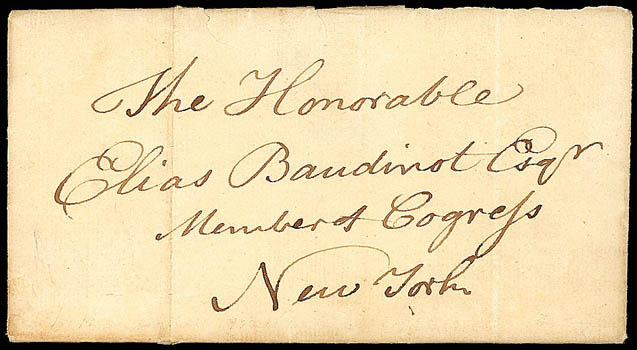 The Honorable
Elias Baudinot Esqr
Member of Cogreſs
New York